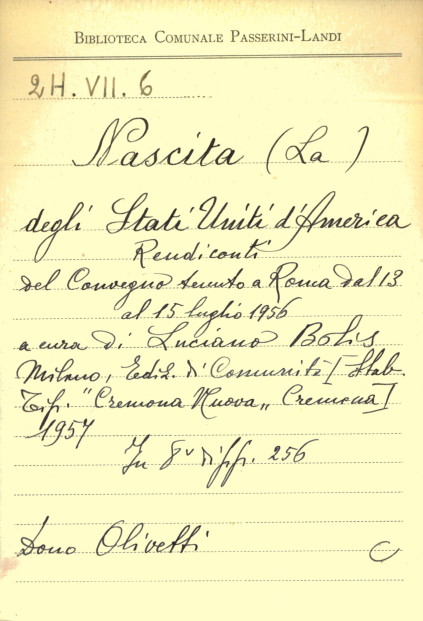 BIBLIOTECA COMUNALE PASSERINI-LANDI
2H. VII. 6
Nascita (La)
degli Stati Uniti d'America
Rendiconti
del Convegno tenuto a Roma dal 13
al 15 luglio 1956
a cura di Luciano Bolis
Milano, Ediz. di Comunità [Stab.
Tip. "Cremona Nuova„ Cremona]
1957
In 8º di pp. 256
Dono Olivetti C